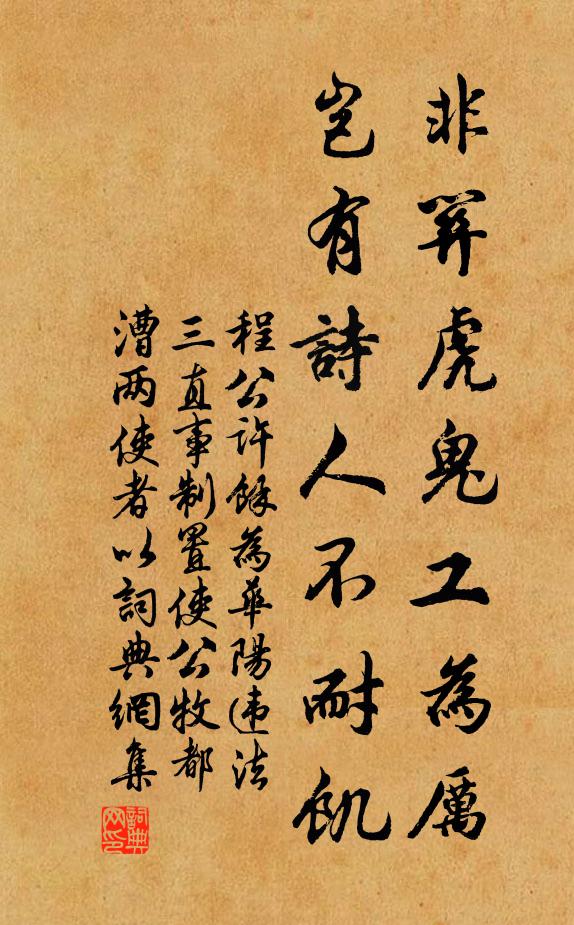 非關虎鬼工為厲
豈有詩人不耐飢
程公許餘為華陽违法
三直事制置使公牧都
漕两使者以詞典網集
詞典
网印